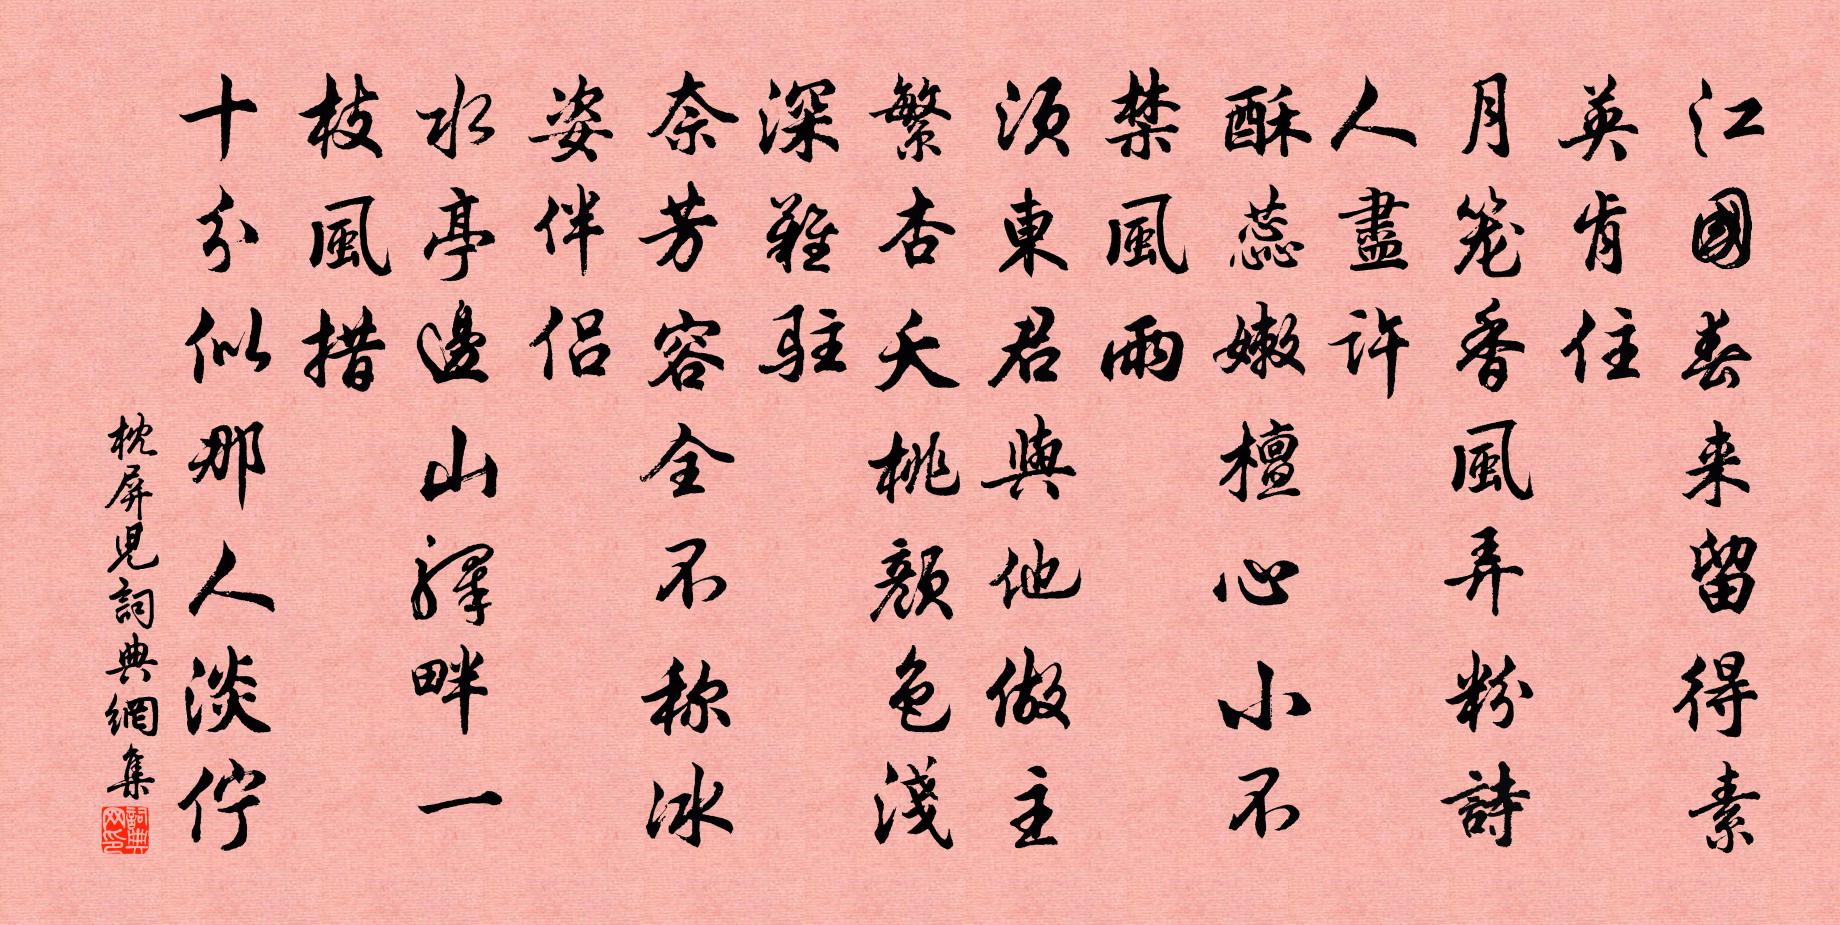 江國春来留得素
英肯住
月笼香風弄粉詩
人盡許
酥蕊嫩檀心小不
禁風雨
須東君與他做主
繁杏夭桃顏色淺
深難駐
奈芳容全不称冰
姿伴侣
水亭邊山驛畔一
枝風措
十分似那人淡佇
枕屏兒詞典網集
詞典网印